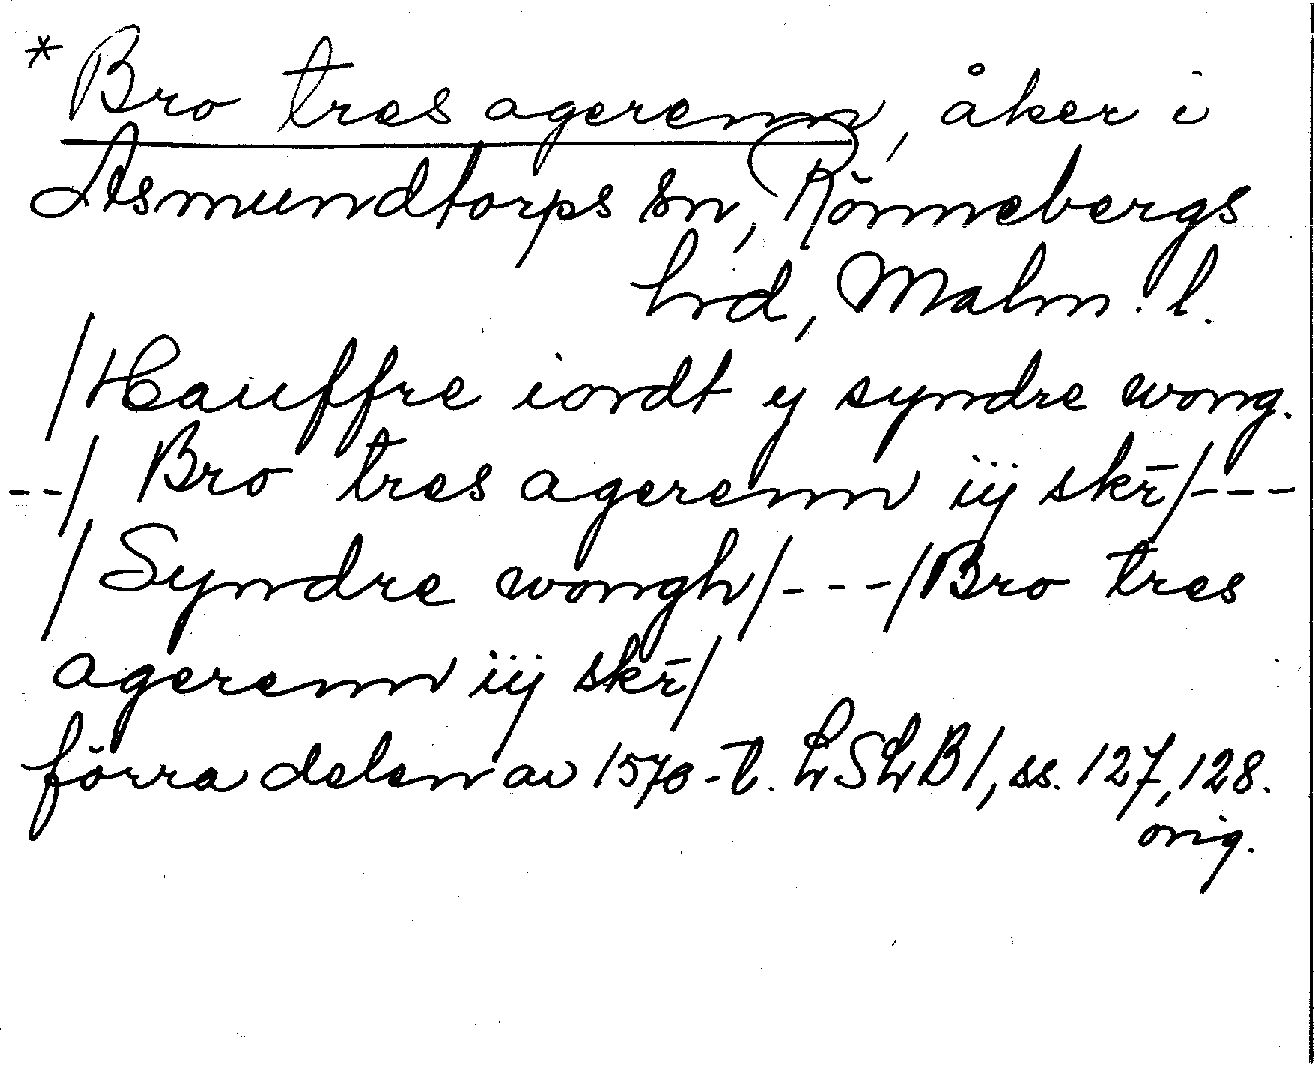 *Bro tres agerenn, åker i
Asmundtorps sn, Rönnebergs
hrd, Malm. l.
/Hauffre iordt y syndre wong.
--/ Bro tres agerenn iij skr̄/---
/Syndre wongh/---/Bro tres
agerenn iij skr̄/
förra delen av 1570-t. LSLB1, ss. 127, 128.
orig.